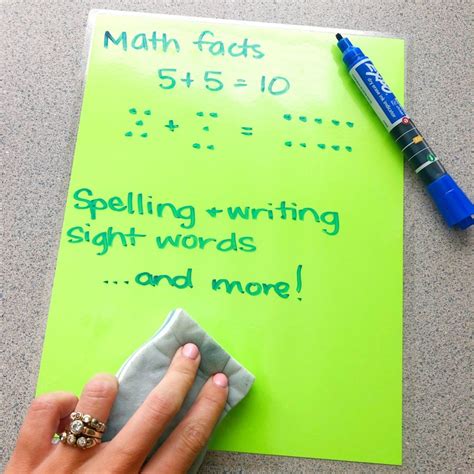 Math facts
5+5=10
+ =
Spelling + writing
sight words
...and more!
EXPO
dry erase